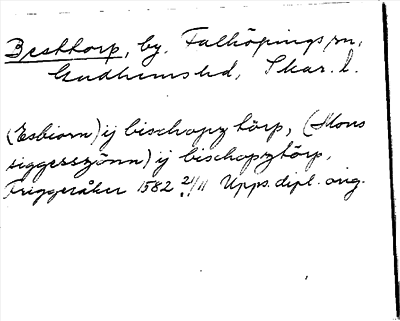 Bestorp, by. Falköpings sn,
Gudhems hd, Skar. l.
(Esbiorn) ij bischopz törp, (Mons
siggesszönn) ij bischopztörp,
Friggeråker 1582 21/11 Upps. dipl. orig.